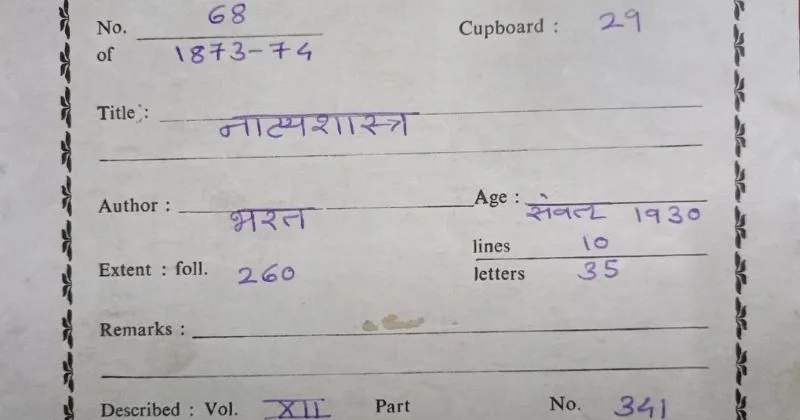 No. 68 Cupboard : 29
of 1873-74
Title : नाट्यशास्त्र
Author : भरत Age : संवत् 1930
lines 10
Extent : foll. 260 letters 35
Remarks :
Described : Vol. XII Part No. 341